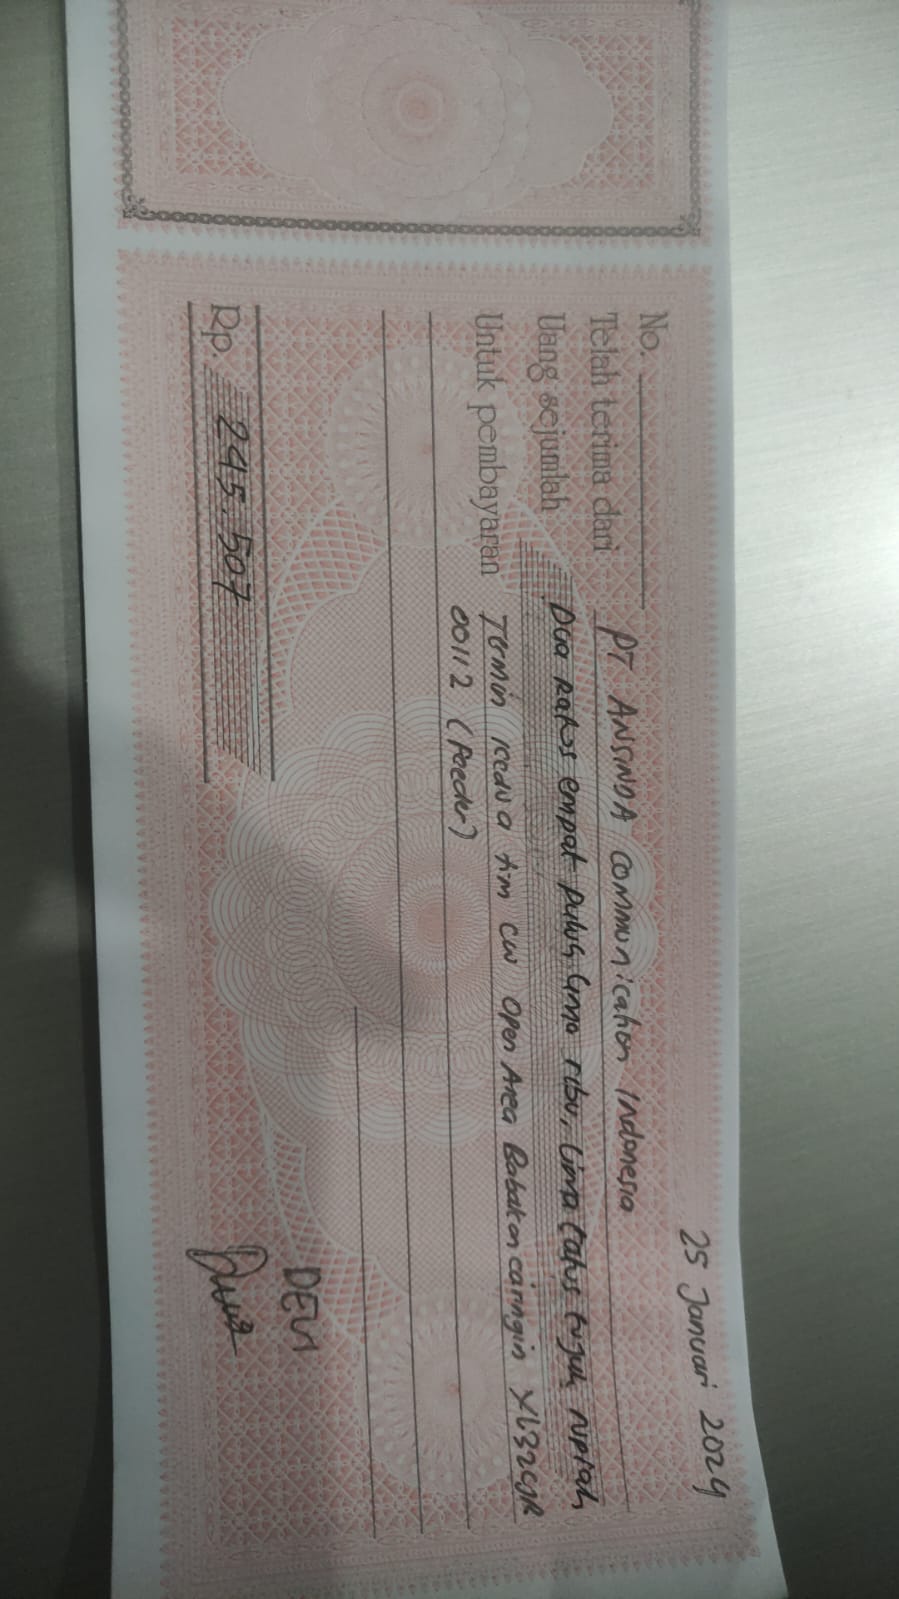 25 Januari 2024
No.
Telah terima dari PT ANSINDA COMMUNICATION INDONESIA
Uang sejumlah Dua ratus empat puluh lima ribu, lima ratus tujuh rupiah
Untuk pembayaran Termin kedua tim CW Open Area Babakan caringin
00112 (Feeder)
Rp. 245.507
DEVI